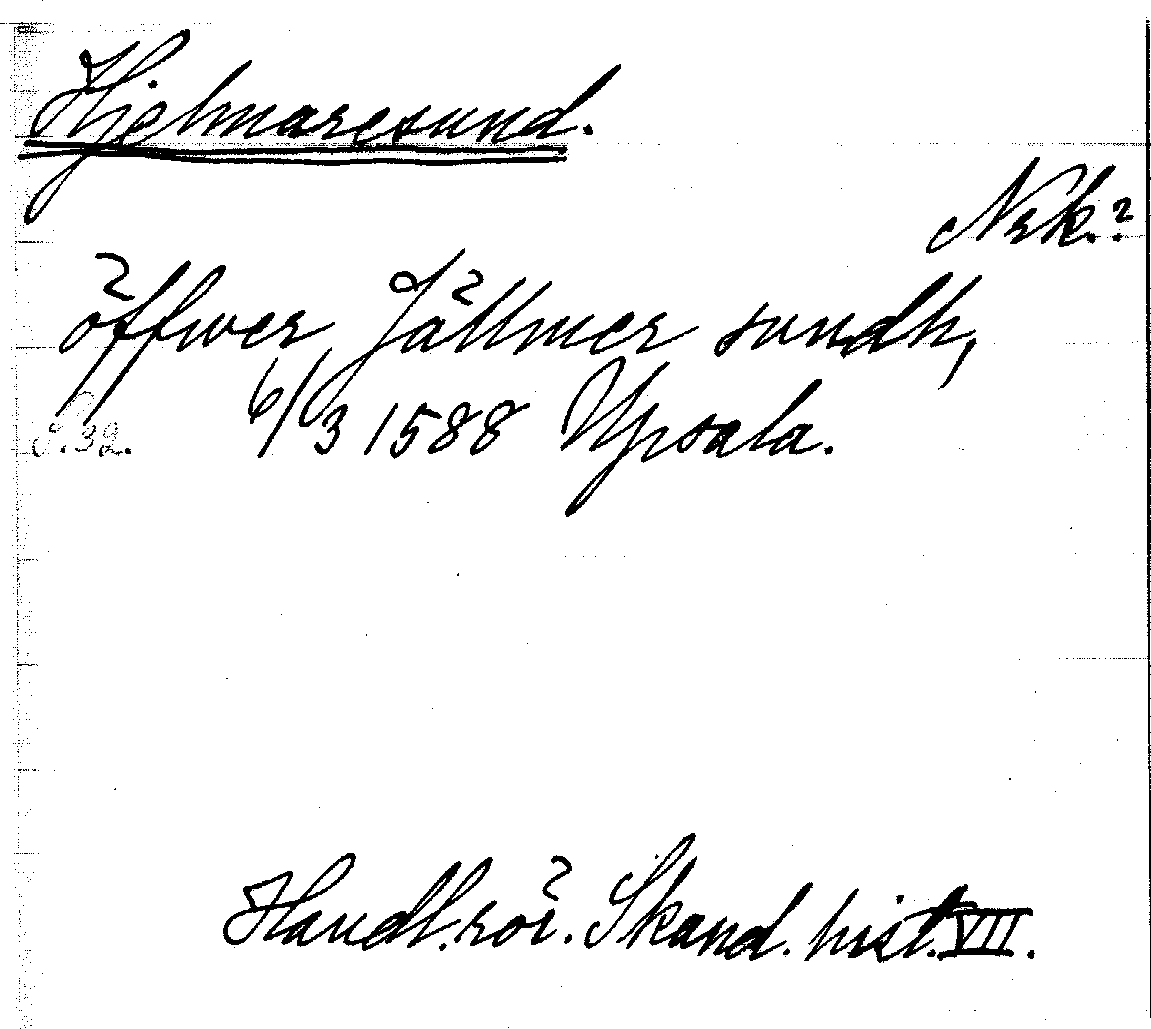 Hjelmaresund.
Nrk.?
öffwer Jällmer sundh,
S.32. 6/3 1588 Upsala.
Handl. rör. Skand. hist. VII.